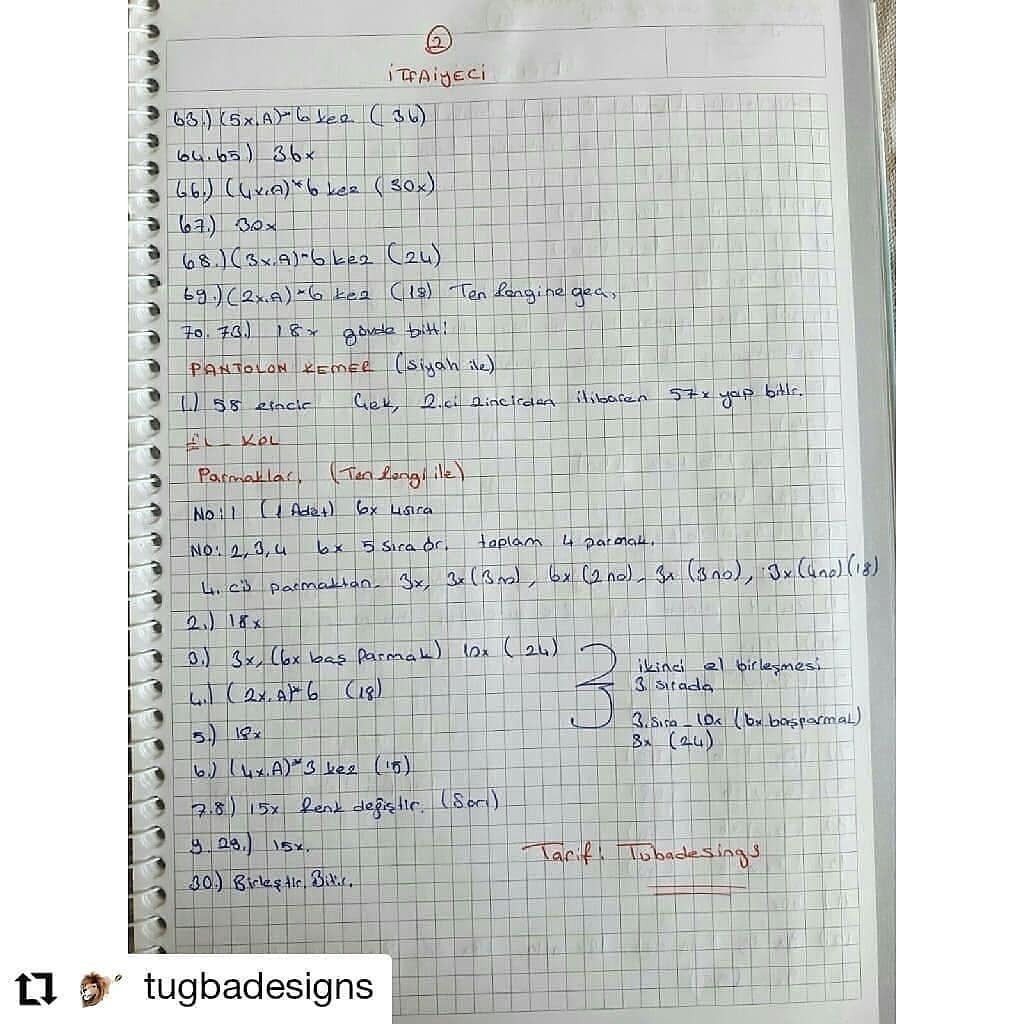 2
İTFAİYECİ
63.) (5x,A)*6 kez (36)
64.65) 36x
66.) (4x,A)*6 kez (30x)
67.) 30x
68.) (3x,A)*6 kez (24)
69.) (2x,A)*6 kez (18) Ten Rengine geç,
70.73.) 18x gövde bitti
PANTOLON KEMER (Siyah ile)
1.) 58 zincir Çek, 2.ci zincirden itibaren 57x yap bitir.
EL KOL
Parmaklar, (Ten Rengi ile)
No:1 (1 Adet) 6x 4sıra
NO: 2,3,4 6x 5 sıra ör. toplam 4 parmak.
4. cü parmaktan 3x, 3x (3no), 6x (2no), 3x (3no), 3x (4no) (18)
2.) 18x
3.) 3x, (6x baş Parmak) 10x (24)
4.) (2x,A)*6 (18)
5.) 18x
6.) (4x,A)*3 kez (15)
7.8.) 15x Renk değiştir. (Sarı)
9.29.) 15x.
30.) Birleştir, Bitir.
ikinci el birleşmesi
3. sırada
3.sıra - 10x (6x başparmak)
3x (24)
Tarif: Tubadesings
tugbadesigns